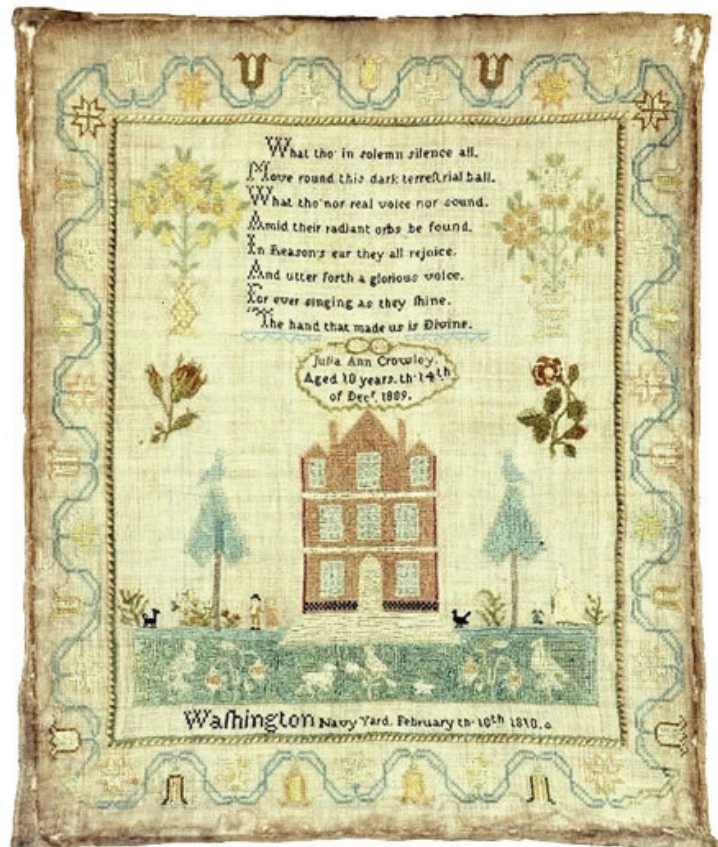 What tho' in solemn silence all.
Move round this dark terreſtrial ball.
What tho' nor real voice nor sound.
Amid their radiant orbs be found.
In Reason's ear they all rejoice.
And utter forth a glorious voice.
For ever singing as they ſhine.
The hand that made us is Divine.
Julia Ann Crowley.
Aged 10 years. th· 14th
of Decr. 1809.
Waſhington Navy Yard. February th· 10th 1810.